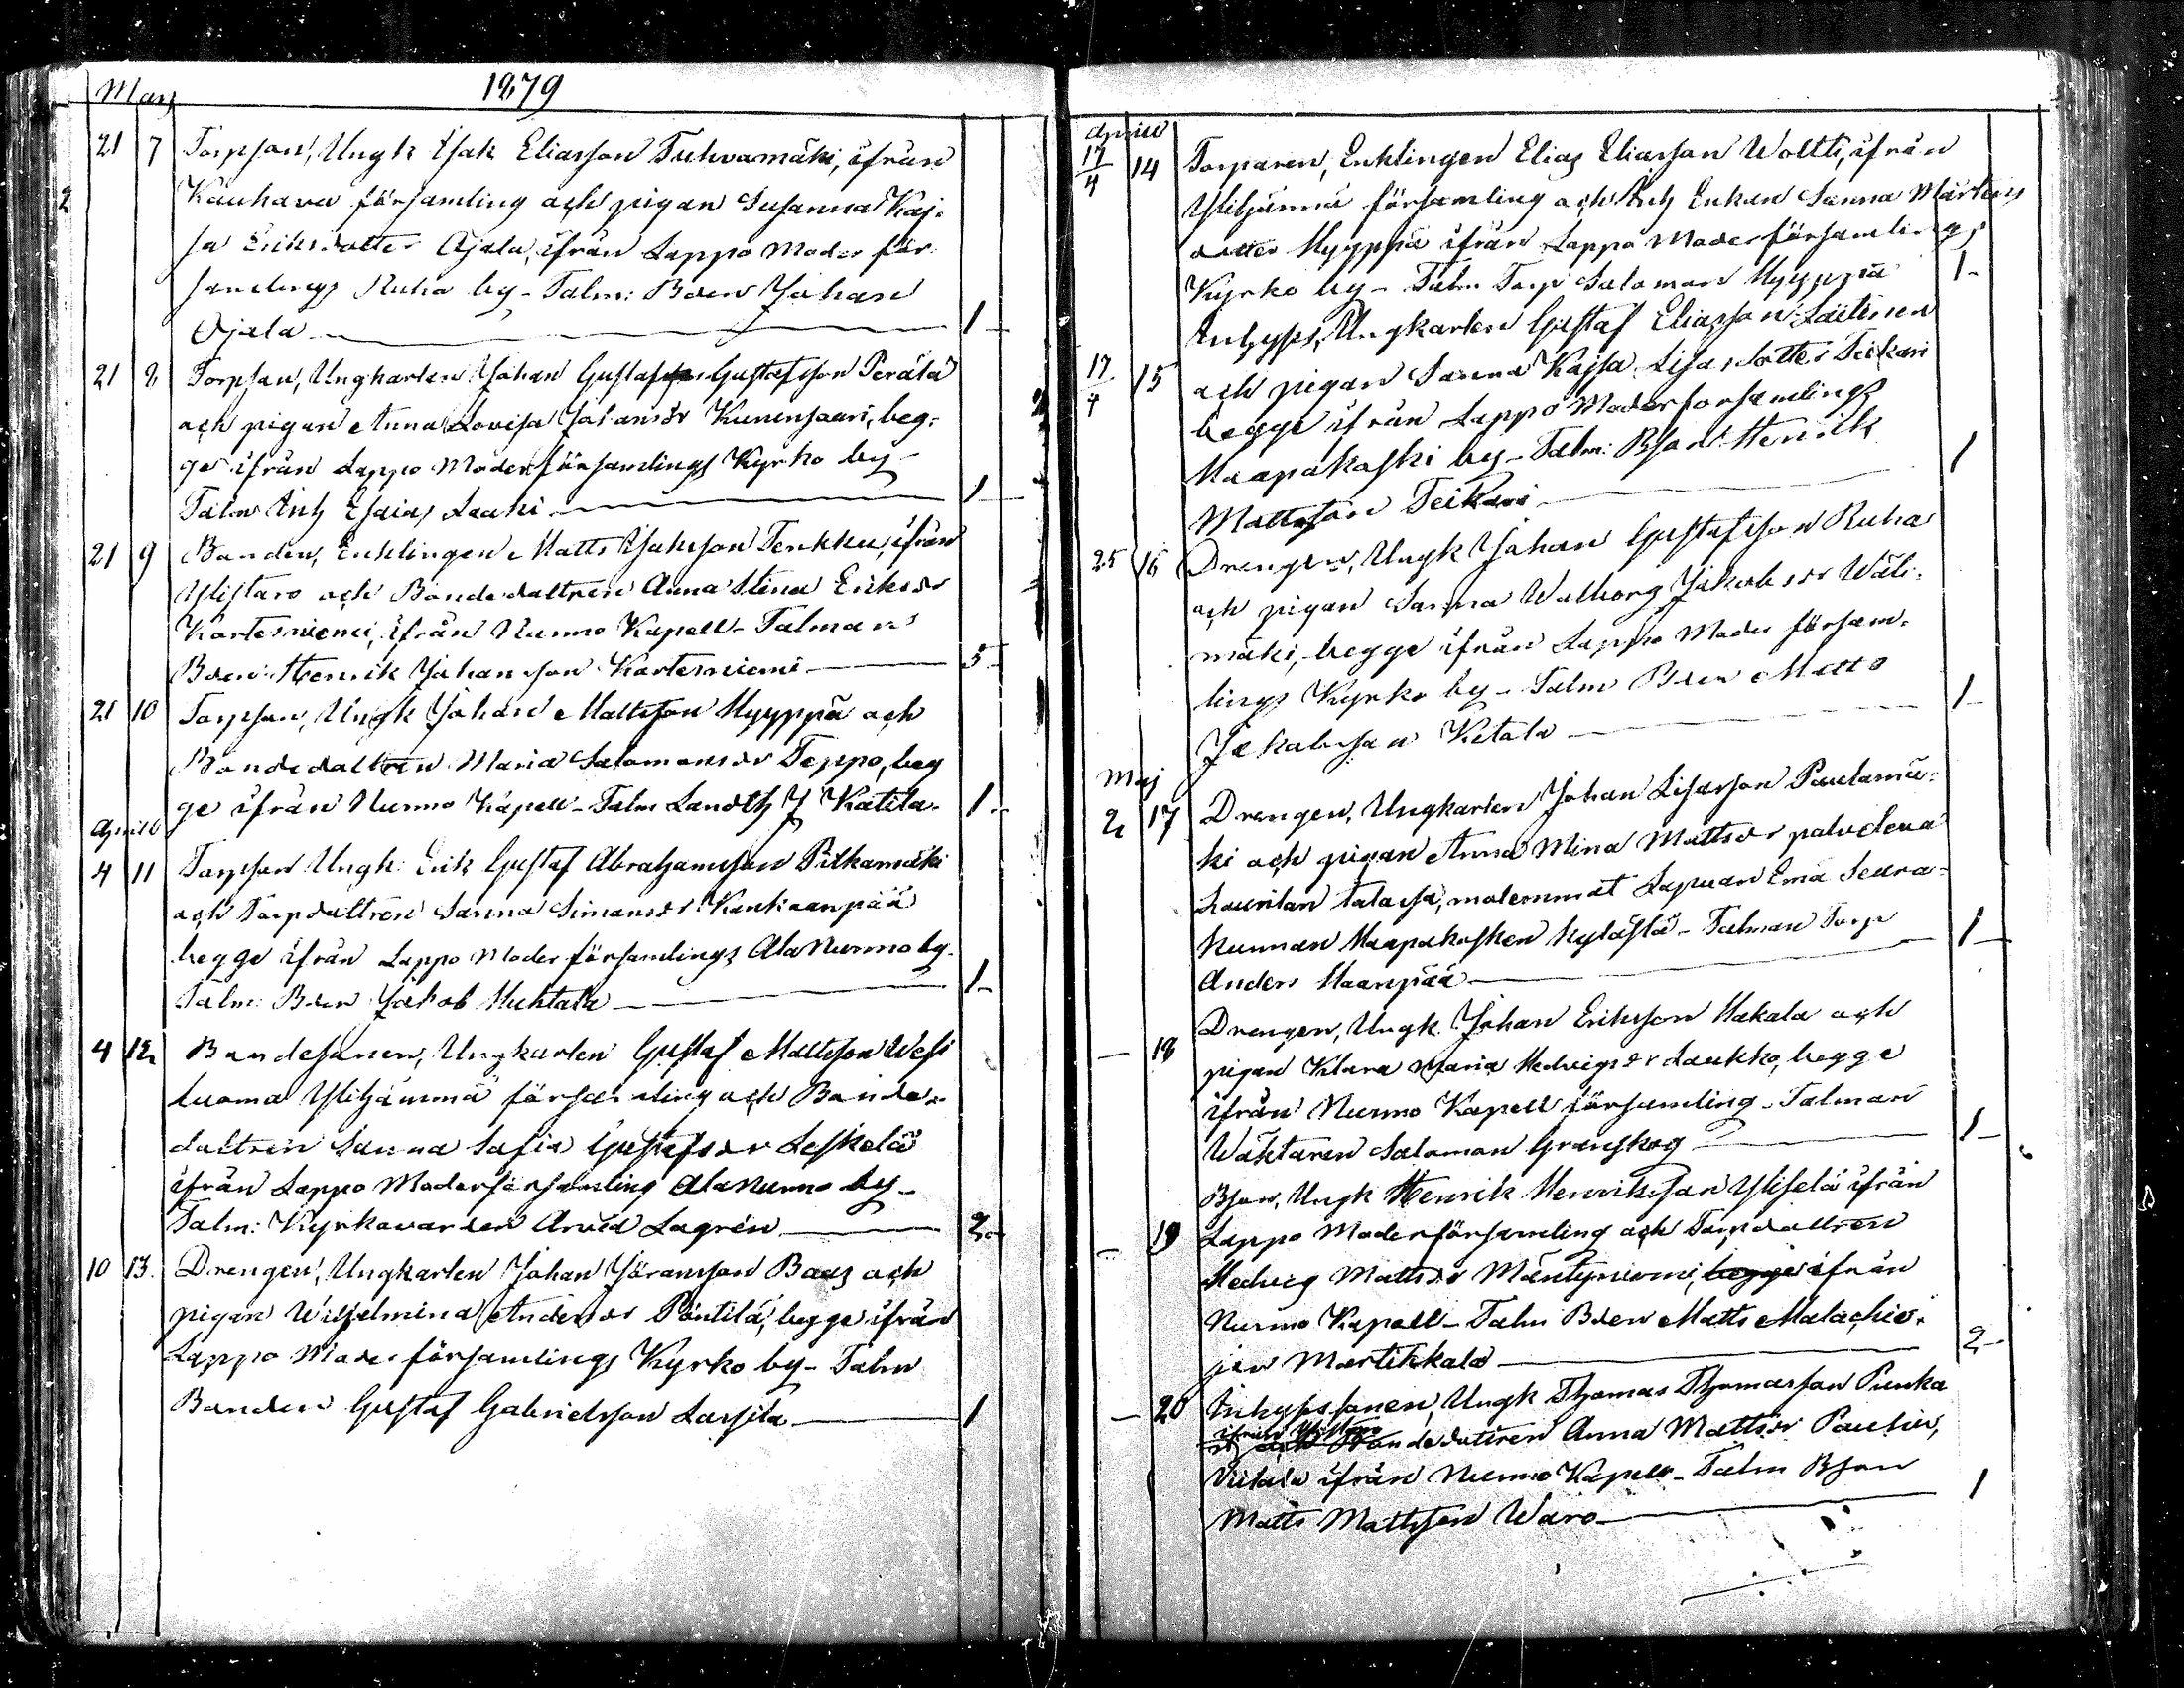 Mars 1879
21 7 Torpson, Ungk Isak Eliasson Tuhvamäki, ifrån
Kauhava församling och pigan Susanna Kaj-
sa Eriksdotter Ojala, ifrån Lappo Moder för-
samlings Ruha by - Talm: Bden Johan
Ojala 1
21 8 Torpson, Ungkarlen Johan Gustafsson Perälä
och pigan Anna Lovisa Johansdr Kunensaari, beg-
ge ifrån Lappo Moderförsamlings Kyrko by -
Talm Inh Esaias Laaki 1
21 9 Bonden, Enklingen Matts Isaksson Tenkku, ifrån
Ylistaro och Bondedottren Anna Stina Eriksdr
Kortesniemi, ifrån Nurmo Kapell - Talman
Bden: Henrik Johansson Kortesniemi 5
21 10 Torpson, Ungk Johan Mattsson Hyyppä och
Bondedottren Maria Salomonsdr Teppo, beg
ge ifrån Nurmo Kapell - Talm Landth J Katila 1
April
4 11 Torpson Ungk: Erik Gustaf Abrahamsson Pitkämäki
och Torpdottren Sanna Simonsdr Kankaanpää
begge ifrån Lappo Moder församlings Ala Nurmo by
Talm: Bden Jakob Huhtala 1
4 12 Bondesonen, Ungkarlen Gustaf Mattsson Wesi
luoma Ylihärmä församling och Bonde-
dottren Sanna Sofia Gustafsdr Leskelä
ifrån Lappo Moderförsamling Ala Nurmo by -
Talm: Kyrkovärden Arvid Lagrén 2
10 13. Drengen, Ungkarlen Johan Göransson Baas och
pigan Wilhelmina Andersdr Pöntilä, begge ifrån
Lappo Moder församlings Kyrko by - Talm
Bonden Gustaf Gabrielsson Lassila 1
April
17/4 14 Torparen, Enklingen Elias Eliasson Woltti, ifrån
Ylihärmä församling och Inh Enkan Sanna Märtens
dotter Hyyppä ifrån Lappo Moderförsamlings
Kyrko by - Talm Torp Salomon Hyyppä 1
Inhyses, Ungkarlen Gustaf Eliasson Laitinen
17/4 15 och pigan Sanna Kajsa Lisasdotter Teikari
begge ifrån Lappo Moderforsamlings
Haapakoski by - Talm: Bson Henrik
Mattsson Teikari 1
25 16 Drengen, Ungk Johan Gustafsson Ruha
och pigan Sanna Walborg Jakobsdr Wäli-
mäki, begge ifrån Lappo Moder försam-
lings Kyrko by - Talm Bden Matts
Jakobsson Ketala 1
Maj
2 17 Drengen, Ungkarlen Johan Lisasson Paulamä-
ki och pigan Anna Mina Mattsdr palveleva
Laurilan talossa, molemmat Lapuan Emä Seura-
kunnan Haapakosken kylästä - Talman Torp
Anders Haanpää 1
— 18 Drengen, Ungk. Johan Eriksson Hakala och
pigan Klara Maria Hedvigsdr Laukko, begge
ifrån Nurmo Kapell församling - Talman
Wäktaren Salomon Granskog 1
— 19 Bson, Ungk Henrik Henriksson Yliselä ifrån
Lappo Moderförsamling och Torpdottren
Hedvig Mattsdr Mäntyniemi, begge ifrån
Nurmo Kapell - Talm Bden Matts Malachie-
jew Martikkala 2
— 20 Inhysessonen, Ungk Thomas Thomasson Punka
ifrån Ylistaro
och Bondedottren Anna Mattsdr
Viitala ifrån Nurmo Kapell - Talm Bson
Matts Mattsson Waro 1